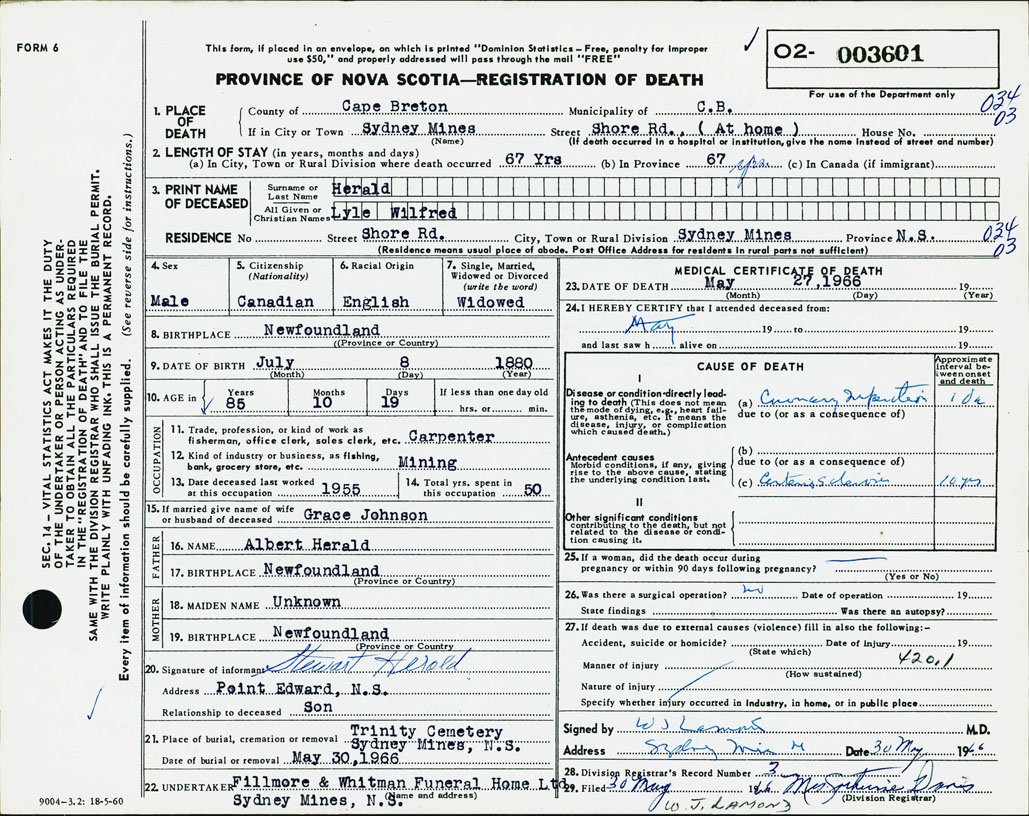 FORM 6
This form, if placed in an envelope, on which is printed "Dominion Statistics – Free, penalty for improper
use $50," and properly addressed will pass through the mail "FREE"
PROVINCE OF NOVA SCOTIA—REGISTRATION OF DEATH
O2- 003601
For use of the Department only
034
03
SEC. 14 – VITAL STATISTICS ACT MAKES IT THE DUTY
OF THE UNDERTAKER OR PERSON ACTING AS UNDER-
TAKER TO OBTAIN ALL THE PARTICULARS REQUIRED
IN THE "REGISTRATION OF DEATH" AND TO FILE THE
SAME WITH THE DIVISION REGISTRAR WHO SHALL ISSUE THE BURIAL PERMIT.
WRITE PLAINLY WITH UNFADING INK. THIS IS A PERMANENT RECORD.
Every item of information should be carefully supplied. (See reverse side for instructions.)
1. PLACE OF DEATH
County of Cape Breton Municipality of C.B.
If in City or Town Sydney Mines Street Shore Rd., ( At home ) House No.
(Name) (If death occurred in a hospital or institution, give the name instead of street and number)
2. LENGTH OF STAY (in years, months and days)
(a) In City, Town or Rural Division where death occurred 67 Yrs (b) In Province 67 yrs (c) In Canada (if immigrant)
3. PRINT NAME OF DECEASED
Surname or Last Name Herald
All Given or Christian Names Lyle Wilfred
RESIDENCE No Street Shore Rd. City, Town or Rural Division Sydney Mines Province N.S.
034
03
(Residence means usual place of abode. Post Office Address for residents in rural parts not sufficient)
4. Sex
Male
5. Citizenship
(Nationality)
Canadian
6. Racial Origin
English
7. Single, Married,
Widowed or Divorced
(write the word)
Widowed
8. BIRTHPLACE Newfoundland
((Province or Country)
9. DATE OF BIRTH July 8 1880
(Month) (Day) (Year)
10. AGE in Years 85 Months 10 Days 19 If less than one day old
hrs. or min.
OCCUPATION
11. Trade, profession, or kind of work as
fisherman, office clerk, sales clerk, etc. Carpenter
12. Kind of industry or business, as fishing,
bank, grocery store, etc. Mining
13. Date deceased last worked
at this occupation 1955
14. Total yrs. spent in
this occupation 50
15. If married give name of wife
or husband of deceased Grace Johnson
FATHER
16. NAME Albert Herald
17. BIRTHPLACE Newfoundland
(Province or Country)
MOTHER
18. MAIDEN NAME Unknown
19. BIRTHPLACE Newfoundland
(Province or Country)
20. Signature of informant Stewart Herald
Address Point Edward, N.S.
Relationship to deceased Son
21. Place of burial, cremation or removal Trinity Cemetery
Sydney Mines, N.S.
Date of burial or removal May 30,1966
22. UNDERTAKER Fillmore & Whitman Funeral Home Ltd
(Name and address)
Sydney Mines, N.S.
9004–3.2: 18-5-60
MEDICAL CERTIFICATE OF DEATH
23. DATE OF DEATH May 27,1966 19
(Month) (Day) (Year)
24. I HEREBY CERTIFY that I attended deceased from:
May 19 to 19
and last saw h alive on 19
CAUSE OF DEATH
Approximate
interval be-
tween onset
and death
I
Disease or condition-directly lead-
ing to death (This does not mean
the mode of dying, e.g., heart fail-
ure, asthenia, etc. It means the
disease, injury, or complication
which caused death.)
(a) Coronary 1 da
due to (or as a consequence of)
Antecedent causes
Morbid conditions, if any, giving
rise to the above cause, stating
the underlying condition last.
(b)
due to (or as a consequence of)
(c) 10 yrs
II
Other significant conditions
contributing to the death, but not
related to the disease or condi-
tion causing it.
25. If a woman, did the death occur during
pregnancy or within 90 days following pregnancy?
(Yes or No)
26. Was there a surgical operation? no Date of operation 19
State findings Was there an autopsy?
27. If death was due to external causes (violence) fill in also the following:–
Accident, suicide or homicide? Date of injury 19
(State which)
420.1
Manner of injury
(How sustained)
Nature of injury
Specify whether injury occurred in industry, in home, or in public place
Signed by W J Lamond M.D.
Address Sydney Mines Date 30 May 1966
28. Division Registrar's Record Number 3
29. Filed 30 May 1966 Davis
(Division Registrar)
W. J. LAMOND